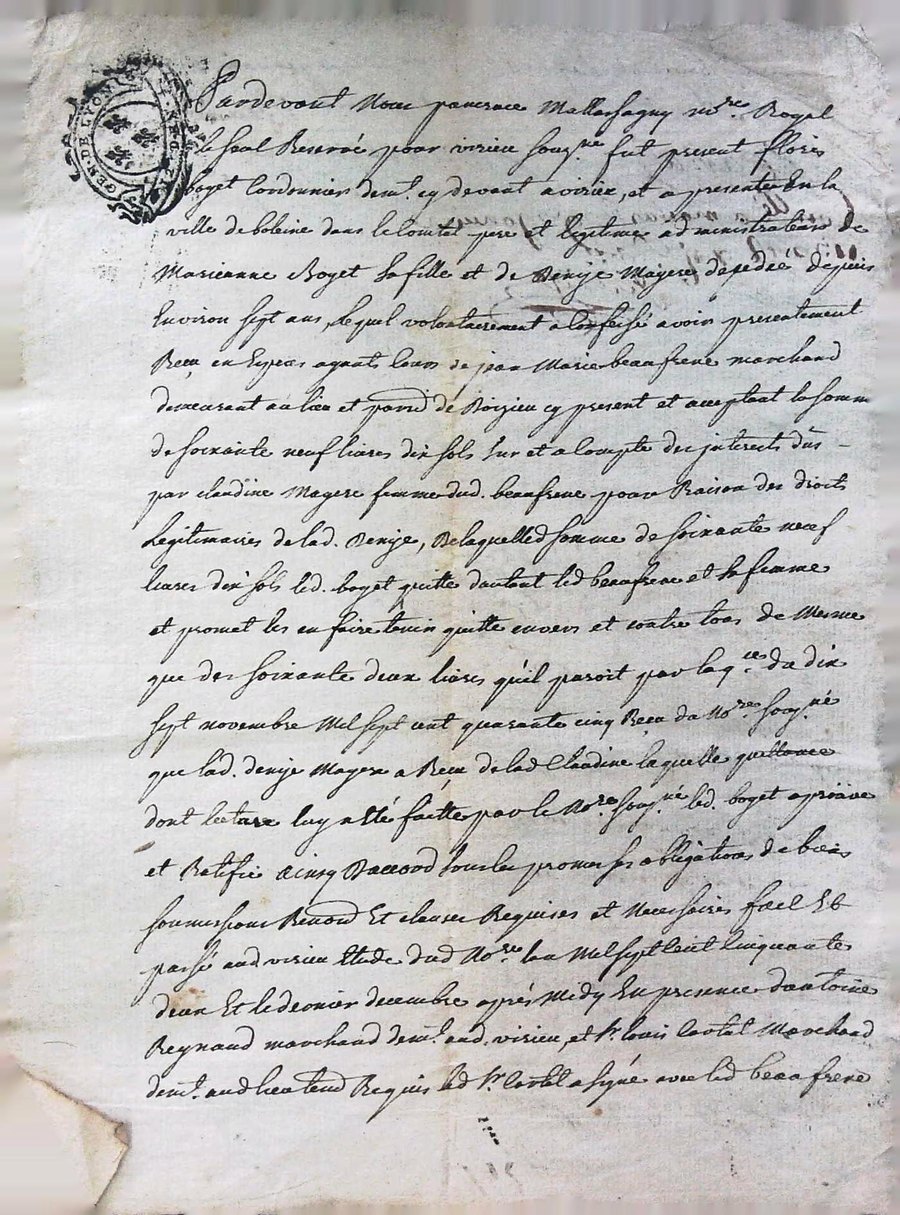 GEN. DE LYON
Pardevant Nous pancrace Mallassagny no.re Royal
le seul Reservé pour virieu soug.né fut present floris
boget Cordonnier dem.t cy devant a virieu, et a present En la
ville de boleine dans le Comtat pere et legitime administrateur de
Marianne Boget sa fille et de Denize Magere decedée depuis
Environ sept ans, lequel volontairement a Confessé avoir presentement
Receu en Especes ayant cours de jean Marie beaufrene marchand
demeurant au lieu et parr.e de Roizieu cy present et acceptant la somme
de soixante neuf livres dix sols sur et a Compte des jnterests dus
par claudine Magere femme dud. beaufrene pour Raison des droits
Legitimaires de lad. Denize, De laquelle d somme de soixante neuf
livres dix sols led. boget quitte d'autant led beaufrene et sa femme
et promet les en faire tenir quitte envers et contre tous De Mesme
que des soixante deux livres qu'il paroit par la q.ce du dix
sept novembre Mil sept cent quarante cinq Receu du No.re soug.né
que lad. denize Magere a Receu de lad Claudine laquelle quittance
dont lecture luy a Eté faitte par le No.re soug.né led. boget aprouve
et Ratifie ainsy D'accord sous les promesses obligations de biens
soumissions Renon.d Et clauses Requises et Necessaires fait Et
passé aud. virieu Etude dud No.re l'an Mil sept Cent Cinquante
deux Et le dernier decembre aprés Midy En presence d'antoine
Reynaud marchand dem.t aud. virieu, et s.r louis Cartal Marchand
dem.t aud lieu temd Requis led s.r Cartal a signé avec led beaufrene